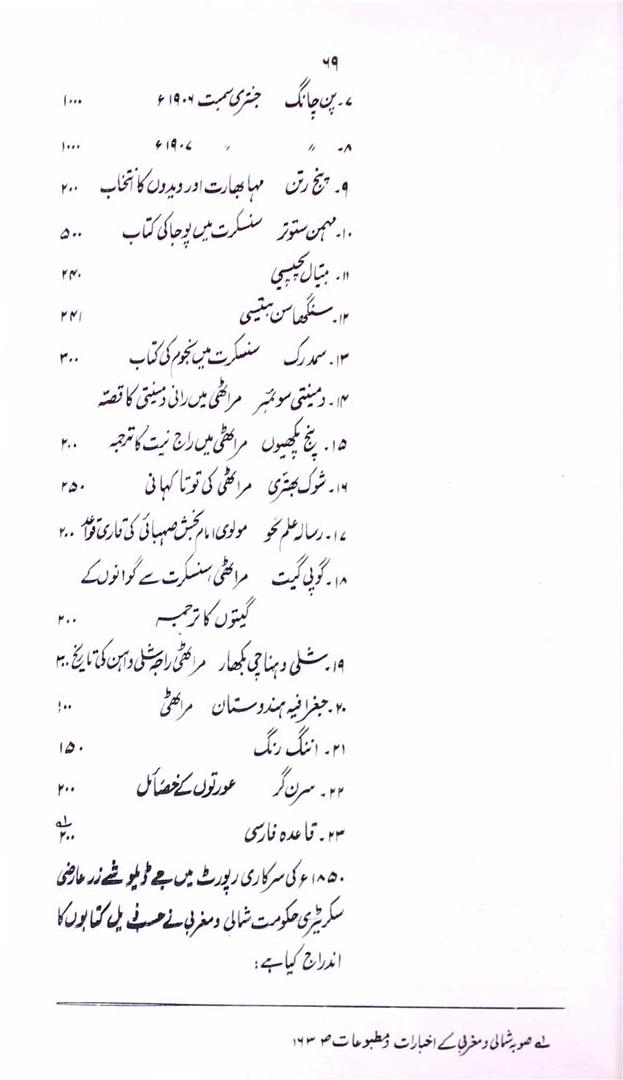 ۶۹
۷۔ پن چانگ جنتری سمبت ۱۹۰۶ء ۱۰۰۰
۸۔ " " ۱۹۰۷ء ۱۰۰۰
۹۔ پنج رتن مہا بھارت اور ویدوں کا انتخاب ۲۰۰
۱۰۔ مہمن ستوتر سنسکرت میں پوجا کی کتاب ۵۰۰
۱۱۔ بیتال پچیسی ۲۴۰
۱۲۔ سنگھاسن بتیسی ۲۴۱
۱۳۔ سمدرک سنسکرت میں نجوم کی کتاب ۳۰۰
۱۴۔ دمینتی سوئمبر مراٹھی میں رانی دمینتی کا قصّہ
۱۵۔ پنج پکھیوں مراٹھی میں راج نیت کا ترجمہ ۲۰۰
۱۶۔ شوک بہتری مراٹھی کی توتا کہانی ۲۵۰
۱۷۔ رسالہ علم نحو مولوی امام بخش صہبائی کی فارسی قواعد ۲۰۰
۱۸۔ گوپی گیت مراٹھی، سنسکرت سے گوالنوں کے
گیتوں کا ترجمہ ۲۰۰
۱۹۔ شلی وہنا چی بکھار مراٹھی راجہ شلی وہن کی تاریخ ۲۰۰
۲۰۔ جغرافیہ ہندوستان مراٹھی ۱۰۰
۲۱۔ اننگ رنگ ۱۵۰
۲۲۔ سرن گر عورتوں کے خصائل ۲۰۰
۲۳۔ قاعدہ فارسی ۲۰۰ لے
۱۸۵۰ء کی سرکاری رپورٹ میں جے ڈبلیو شے زر عارضی
سکریٹری حکومت شمالی و مغربی نے حسب ذیل کتابوں کا
اندراج کیا ہے:
لے صوبہ شمالی و مغربی کے اخبارات و مطبوعات ص ۱۶۳